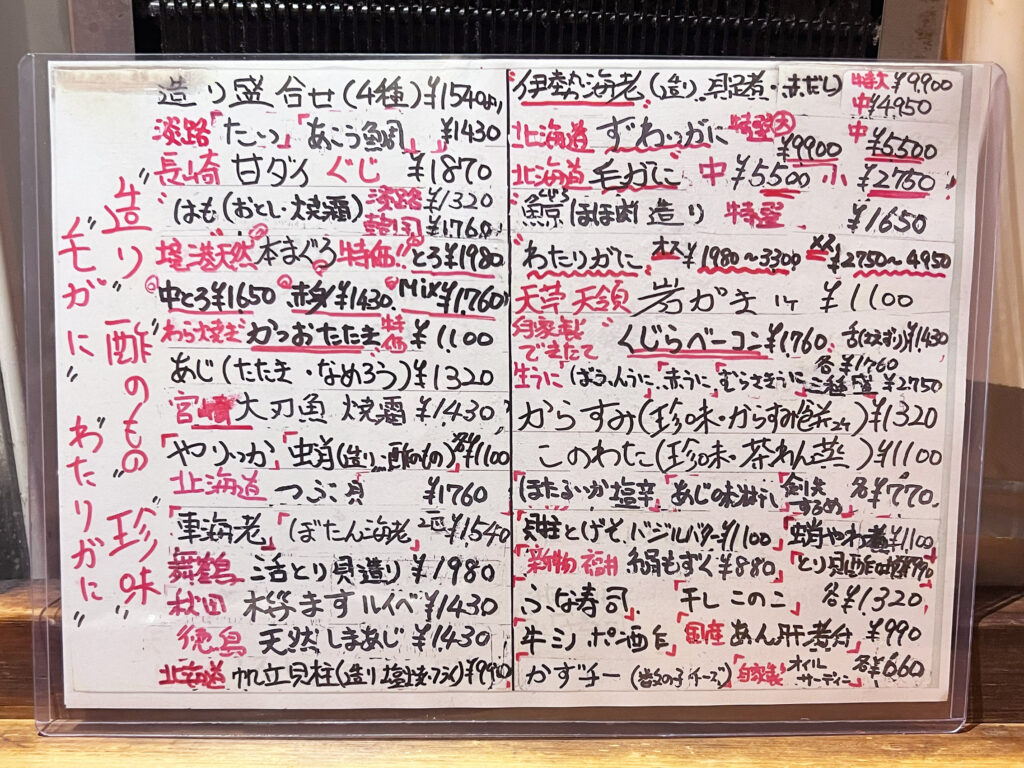 造り 酢のもの 珍味
"毛ガに" "わたりガに"
造り盛合せ(4種)¥1540より
淡路「たこ」「あこう鯛」¥1430
長崎 甘ダイ ぐじ ¥1870
はも(おとし・焼霜)淡路¥1320
韓国¥1760
境港天然本まぐろ特価!!とろ¥1980
中とろ¥1650 赤身¥1430 Mix¥1760
わら焼きかつおたたき 特価 ¥1100
あじ(たたき・なめろう)¥1320
宮崎 太刀魚 焼霜 ¥1430
「やりいか」「蛸(造り・酢のもの)各¥1100
北海道 つぶ貝 ¥1760
「車海老」「ぼたん海老」2匹¥1540
舞鶴 活とり貝造り ¥1980
秋田 桜ます ルイベ ¥1430
徳島 天然しまあじ ¥1430
北海道 帆立貝柱(造り・塩焼・フライ)¥990
"伊勢海老(造り・具足煮・赤だし) 特大¥9900
中¥4950
北海道 ずわいがに 特選大 ¥9900 中 ¥5500
北海道 毛がに 中¥5500 小¥2750
くじら
鯨 ほほ肉 造り 特選 ¥1650
"わたりがに オス¥1980〜3300 メス¥2750〜4950
天草 天領 岩がき 1ケ ¥1100
自家製できたて くじらベーコン¥1760 舌(さえずり)¥1430
生うに「ばふんうに」「赤うに」「むらさきうに」各¥1760 三種盛¥2750
からすみ(珍味・からすみ餅)¥1320
このわた(珍味・茶わん蒸)¥1100
「ほたるいか塩辛」「あじのみりんぼし」「剣先するめ」各¥770
貝柱とげそ バジルバター¥1100 「蛸やわ煮」¥1100
「新物 福井 絹もずく¥880」「とり貝酢の物¥990
ふな寿司」「干しこのこ」各¥1320
牛シン ポン酒作」「国産 あん肝煮付」¥990
かずチー(数の子チーズ)」「自家製オイルサーディン」各¥660